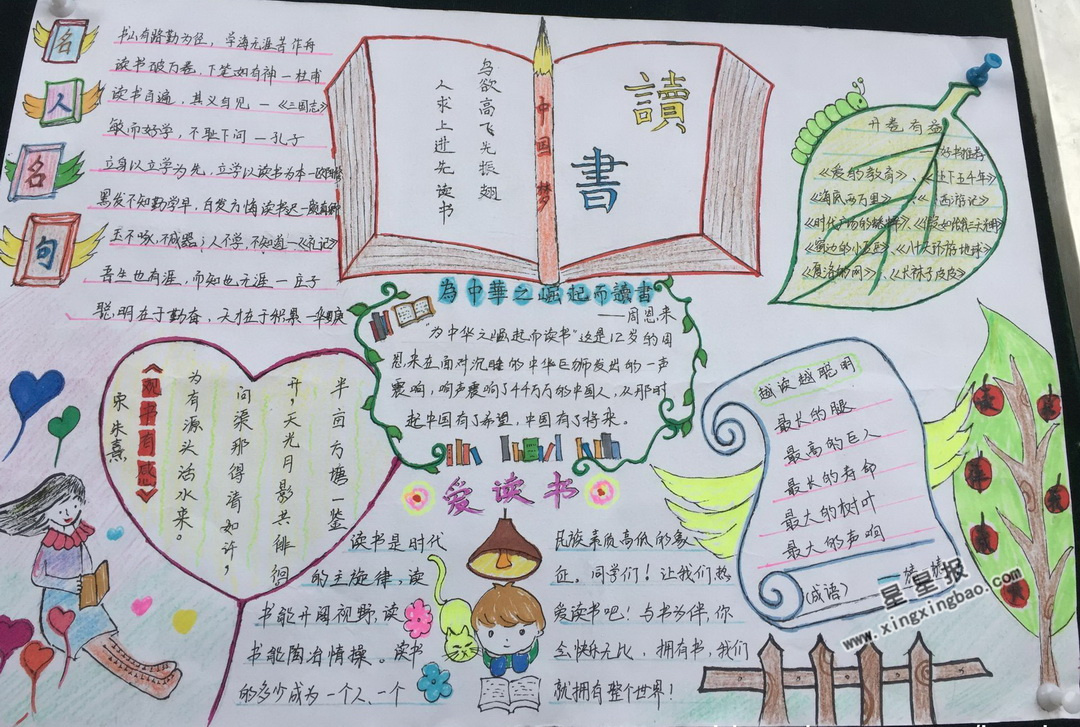 名人名句
书山有路勤为径，学海无涯苦作舟
读书破万卷，下笔如有神—杜甫
读书百遍，其义自见—《三国志》
敏而好学，不耻下问—孔子
立身以立学为先，立学以读书为本—欧阳修
黑发不知勤学早，白发方悔读书迟—颜真卿
玉不啄，不成器；人不学，不知道—《礼记》
吾生也有涯，而知也无涯—庄子
聪明在于勤奋，天才在于积累—华
鸟欲高飞先振翅
人求上进先读书
中国梦
讀書
开卷有益
好书推荐
《爱的教育》、《上下五千年》
《海底两万里》、《西游记》
《时代广场的蟋蟀》《假如给我三天光明》
《窗边的小豆豆》、《八十天环游地球》
《夏洛的网》、《长袜子皮皮》
為中華之崛起而讀書
——周恩来
“为中华之崛起而读书”这是12岁的周
恩来在面对沉睡的中华巨狮发出的一声
震响，响声震响了44万万的中国人，从那时
起中国有了希望，中国有了将来。
《观书有感》
宋 朱熹
半亩方塘一鉴
开，天光月影共徘徊
问渠那得清如许，
为有源头活水来。
爱读书
读书是时代
的主旋律，读
书能开阔视野，读
书能陶冶情操。读书
的多少成为一个人、一个
民族素质高低的象
征。同学们！让我们热
爱读书吧！与书为伴，你
会快乐无比，拥有书，我们
就拥有整个世界！
越读越聪明
最长的腿
最高的巨人
最长的寿命
最大的树叶
最大的声响
(成语)
星星报
www.xingxingbao.com